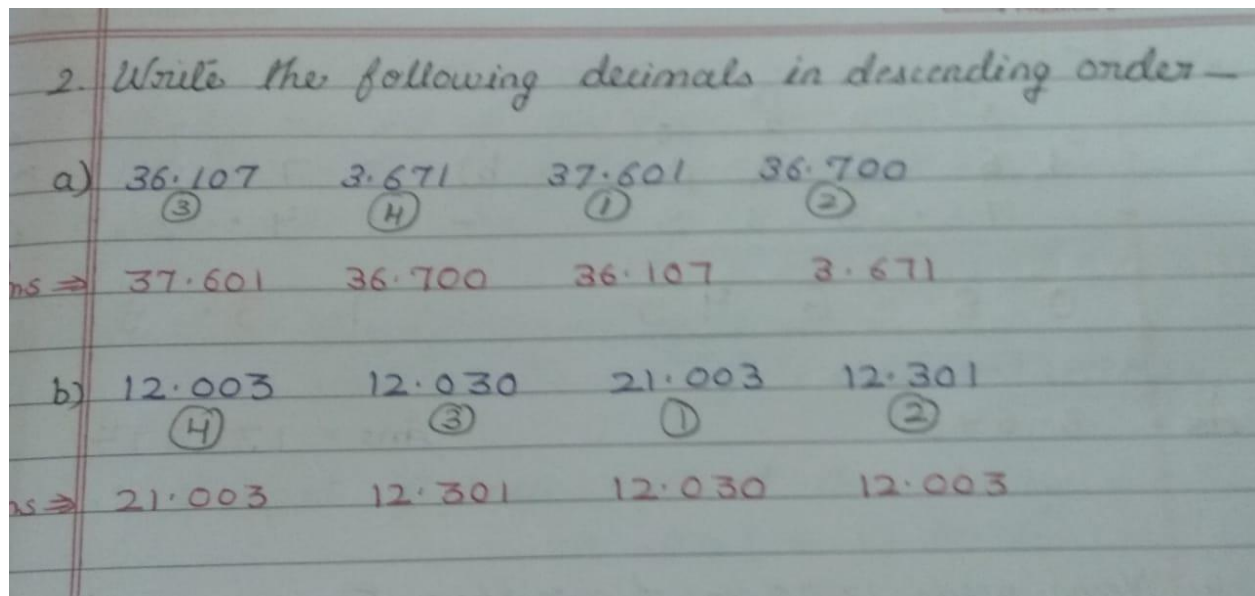 2. Write the following decimals in descending order-
a) 36.107 3.671 37.601 36.700
③ ④ ① ②
ns ⇒ 37.601 36.700 36.107 3.671
b) 12.003 12.030 21.003 12.301
④ ③ ① ②
ns ⇒ 21.003 12.301 12.030 12.003